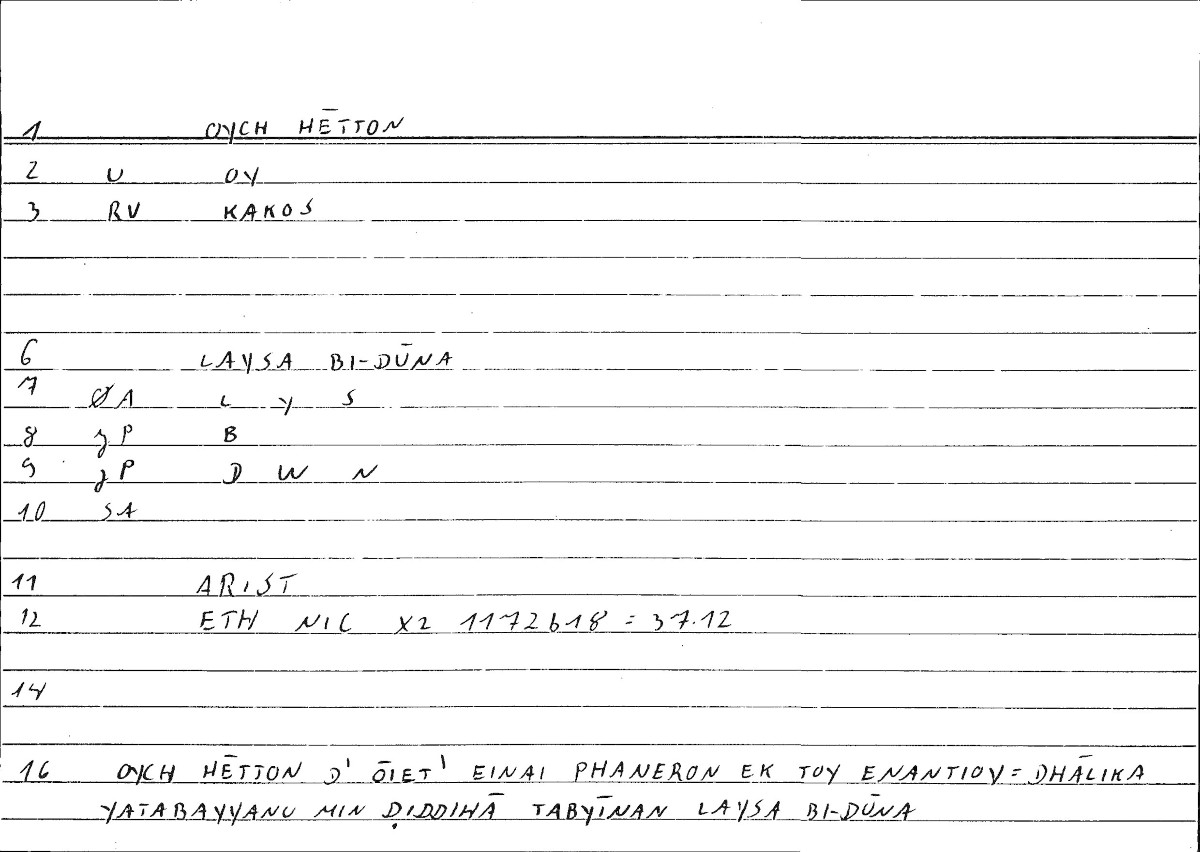 1 OYCH HĒTTON
2 U OY
3 RV KAKOS
6 LAYSA BI-DŪNA
7 ØA L Y S
8 zP B
9 zP D W N
10 SA
11 ARIST
12 ETH NIC X2 1172b18 = 37.12
14
16 OYCH HĒTTON D' ŌIET' EINAI PHANERON EK TOY ENANTIOY = DHĀLIKA
YATABAYYANU MIN ḌIDDIHĀ TABYĪNAN LAYSA BI-DŪNA